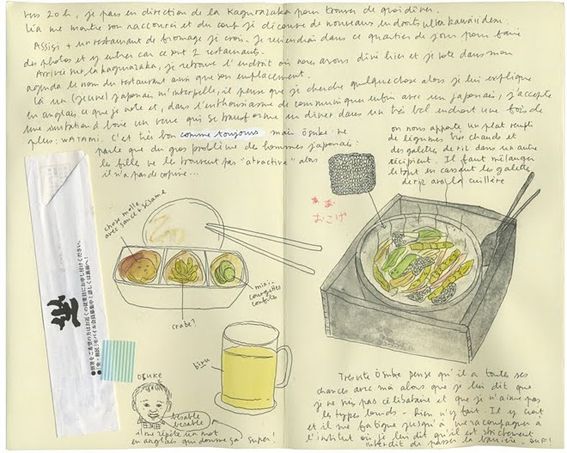 vers 20h, je pars en direction de la Kagurazaka pour trouver de quoi dîner.
Léa me montre son raccourci et du coup je découvre de nouveaux endroits ultra kawaii dem:
Assigi + un restaurant de fromage je crois. Je reviendrai dans ce quartier de jour pour faire
des photos et y entrer car ce sont 2 restaurants.
Arrivée sur la kagurazaka, je retrouve l'endroit où nous avons dîné hier et je note dans mon
agenda le nom du restaurant ainsi que son emplacement.
Là un (jeune) japonais m'interpelle, il pense que je cherche quelque chose alors je lui explique
en anglais ce que je note et, dans l'enthousiasme de communiquer enfin avec un japonais, j'accepte
une invitation à boire un verre qui se transforme en dîner dans un très bel endroit une fois de
plus: WATAMI. C'est très bon comme toujours mais Ôsuke me
parle du gros problème de hommes japonais:
les filles ne le trouvent pas "attractive" alors
il n'a pas de copine...
on nous apporte un plat rempli
de légumes très chauds et
des galettes de riz dans un autre
récipient. Il faut mélanger
le tout en cassant les galettes
de riz avec la cuillère
chose molle
avec sauce + sésame
おこげ
crabe?
mini-
courgettes
confites
bière
OSUKE
bisable
bisable
il me répète un mot
en anglais qui donne ça! super!
Très vite Ôsuke pense qu'il a toutes ses
chances avec moi alors que je lui dit que
je ne suis pas célibataire et que je n'aime pas
les types lourds - Rien n'y fait. Il y croit
et il me fatigue jusqu'à me raccompagner à
l'institut où je lui dit qu'il est strictement
interdit de passer la barrière. OUF!